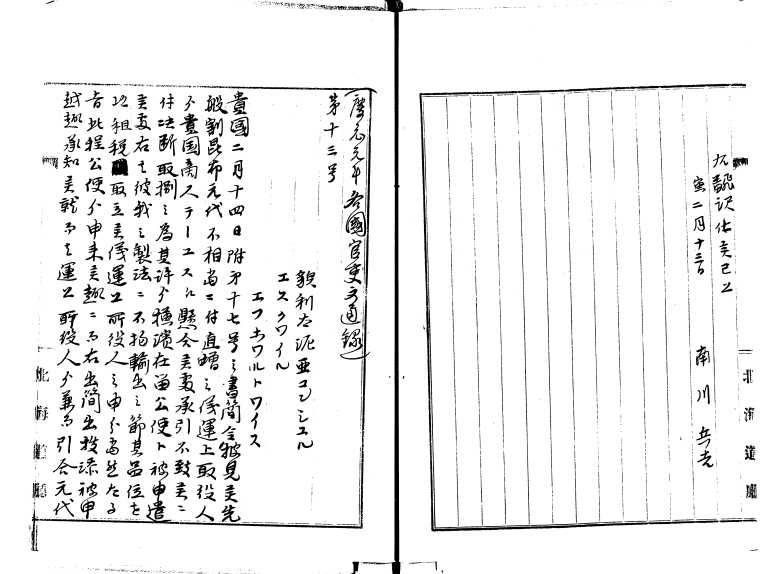 右飜訳仕候已上
寅二月十三日
南川兵吉
北海道廳
慶応元年各國官吏文通録
第十三号
貌利太泥亜コンシュル
エスクワイル
エフホワルトワイス
貴國二月十四日附第十七号之書簡令披見候先
般割昆布元代不相当ニ付直増之儀運上取役人
ゟ貴国商人テーエス江懸合候処承引不致候ニ
付決断取捌之為其許ゟ横濱在留公使ト被申遣
候処右者彼我之製法ニ不拘輸出之節其品位を
以租税取立候儀運上所役人之申分当然たる
旨此程公使ゟ申来候趣ニ而右出簡出投添被申
越趣承知候就而者運上所役人ゟ兼而引合元代
北海道廳